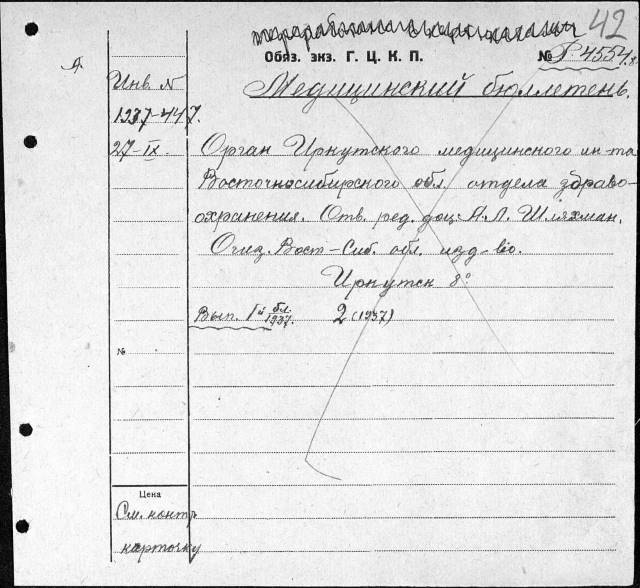 42
Обяз. экз. Г. Ц. К. П. № Р-4554
Медицинский бюллетень.
А
Инв. N
1937-447.
27-IX.
Орган Иркутского медицинского ин-та
Восточносибирского обл. отдела здраво-
охранения. Отв. ред. доц. А.Л. Шляхман.
Огиз. Вост-Сиб. обл. изд-во.
Иркутск 8°
Вып. 1й бл. 1937. 2 (1937)
№
Цена
См. контр
карточку